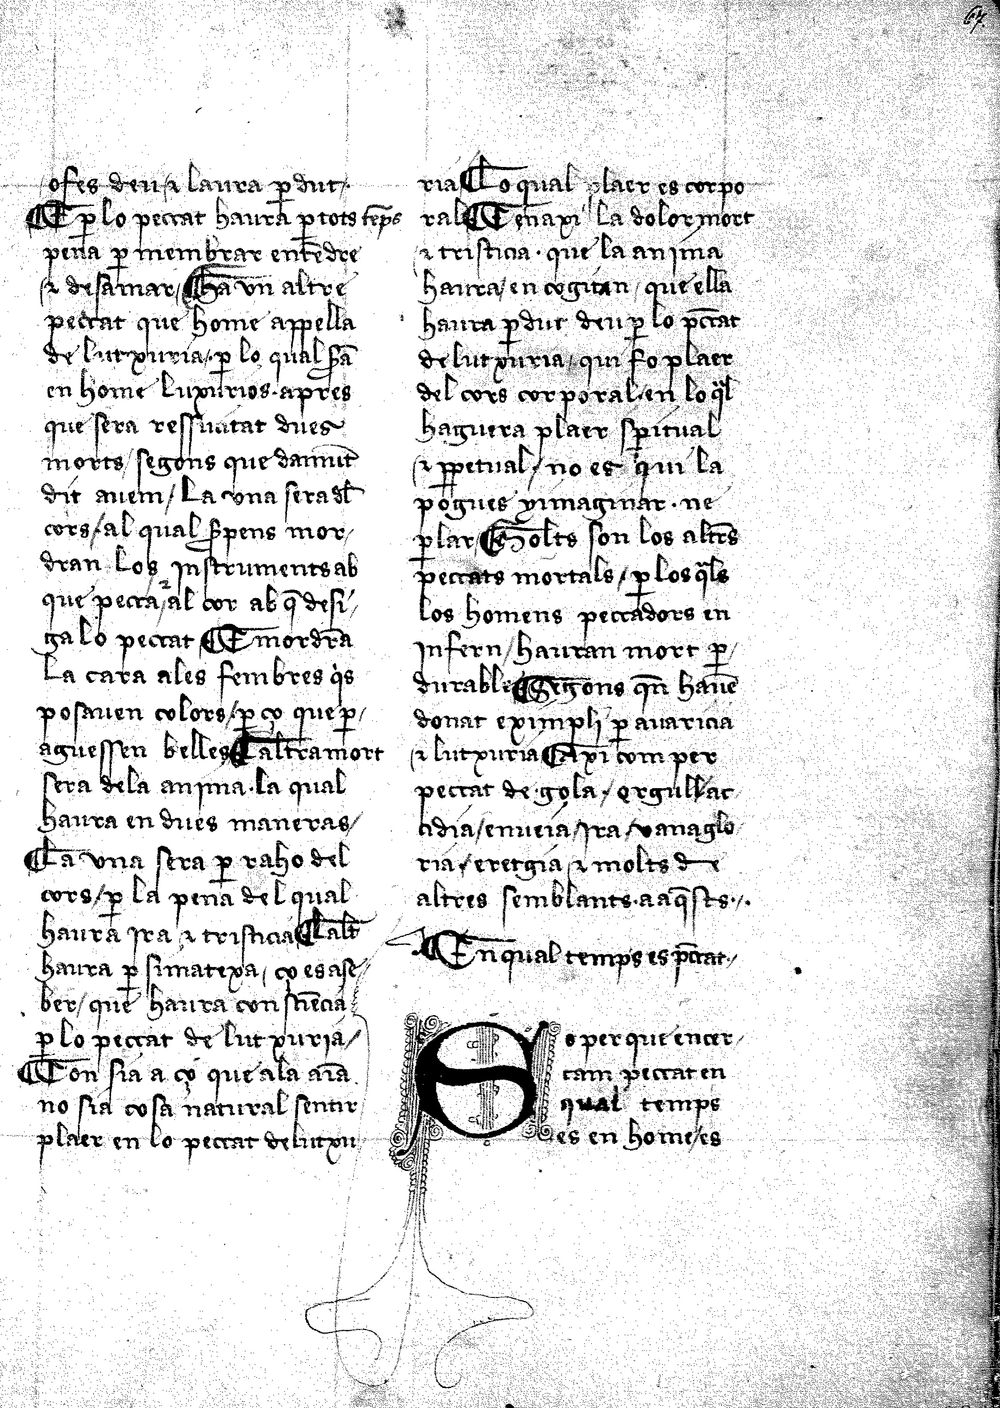 67.
ofes deu / ⁊ laura ꝑdut·
¶ E ꝑ lo peccat haura ꝑ tots tēps
pena ꝑ membrar entēdre
⁊ desamar / ¶ Ha vn altre
peccat que home appella
de lutxuria / ꝑ lo qual
en home luxurios · apres
que sera ressucitat dues
morts / segons que damūt
dit auem / La vna sera dl
cors / al qual ꝑpens mor /
dran Los instruments ab
que pecca / ⁊ al cor ab q̄ desi /
ga lo peccat ¶ E mordra
La cara a les fembres q̇s
posauen colors / ꝑ ço que ꝑ /
aguessen belles ¶ Laltra mort
sera de la anima · la qual
haura en dues maneras /
¶ La vna sera ꝑ raho del
cors / ꝑ la pena del qual
haura ira ⁊ tristicia ¶ Lalt̄
haura ꝑ si matexa / ço es a sa /
ber / que haura consciēcia
ꝑ lo peccat de lutxuria /
¶ Con sia a ço que a la aīa
no sia cosa natural sentir
plaer en lo peccat de lutxu
ria ¶ Lo qual plaer es corpo
ral ¶ E en axi la dolor mort
⁊ tristicia · que la anima
haura / en cogitan / que ella
haura ꝑdut deu ꝑ lo pc̄cat
de lutxuria / qui fo plaer
del cors corporal / en lo q̄l
haguera plaer sp̄itual
⁊ ꝑpetual / no es qui la
pogues ymaginar · ne
ꝑlar / ¶ Molts son los altr̄s
peccats mortals / ꝑ los q̄ls
los homens peccadors en
infern / hauran mort ꝑ /
durable ¶ Segons qn̄ hauē
donat eximpli ꝑ auaricia
⁊ lutxuria ¶ Axi com per
peccat de gola / orgull / ac
cidia / enueia / ira / vanaglo
ria / eretgia ⁊ molts de
altres semblants · a aq̄sts ·/.
¶ En qual temps es pc̄cat ·/
So per que encer /
cam peccat en
qual temps
es en home / es